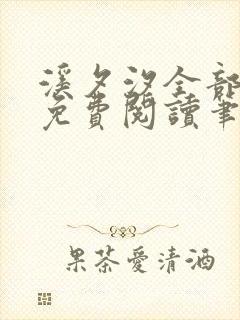 溪夕汐全部
免費閱讀筆
果茶愛清酒